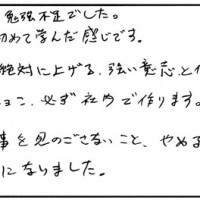 勉強不足でした。
初めて学んだ感じです。
絶対に上げる、強い意志と
必ず社内で作ります。
事を見のごさないこと、やめる
になりました。